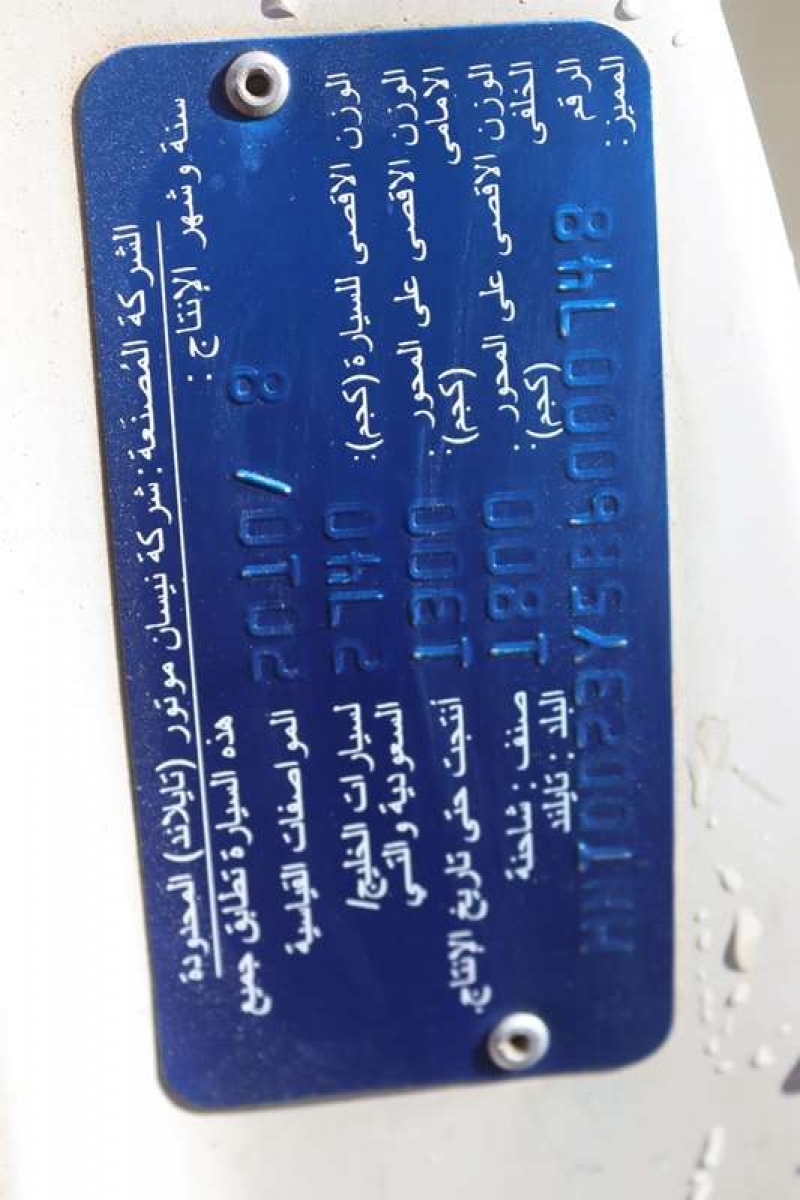 الشركة المصنعة : شركة نيسان موتور (تايلاند) المحدودة
سنة وشهر الإنتاج : 2010/ 8
هذه السيارة تطابق جميع
المواصفات القياسية
لسيارات الخليج/
السعودية والتي
انتجت حتى تاريخ الإنتاج.
الوزن الاقصى للسيارة (كجم): 2740
الوزن الاقصى على المحور : 1300
الامامى (كجم)
الوزن الاقصى على المحور : 1800
الخلفى (كجم)
صنف : شاحنة
البلد : تايلند
الرقم
المميز :
MNTDD23Y5B6000748